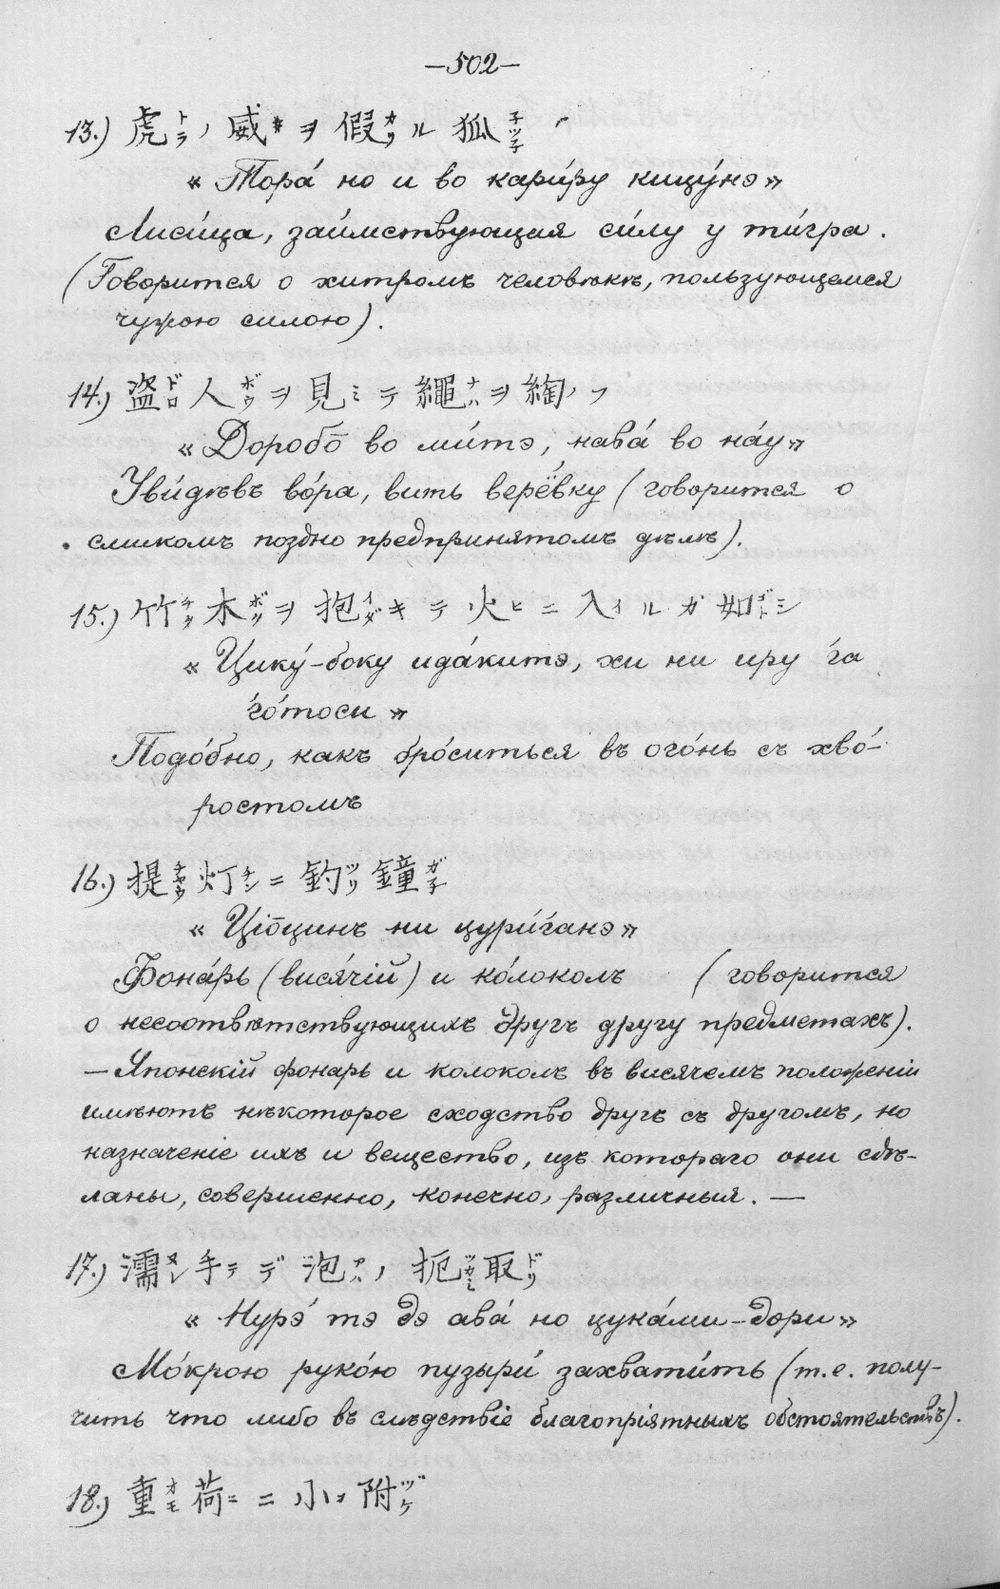 —502—
13.) 虎トラノ威ヰヲ假カリル狐キツ子
« Тора́ но и во кари́ру кицу́нэ »
Лиси́ца, заи́мствующая си́лу у ти́гра.
(Говорится о хитромъ человѣкѣ, пользующемся
чужою силою).
14.) 盗ドロ人ボウヲ見ミテ繩ナハヲ綯ノフ
« Доробо̄ во ми́тэ, нава́ во на́у »
Уви́дѣвъ во́ра, вить верёвку (говорится о
слишкомъ поздно предпринятомъ дѣлѣ).
15.) 竹チク木ボクヲ抱イダキテ火ヒニ入イルガ如ゴトシ
« Цику́-боку ида́китэ, хи ни иру га
го́тоси »
Подо́бно, какъ бро́ситься въ ого́нь съ хво́-
ростомъ
16.) 提チヤウ灯チンニ釣ツリ鐘ガ子
« Ціо̄цинъ ни цури́ганэ »
Фона́рь (вися́чій) и ко́локолъ (говорится
о несоотвѣтствующихъ другъ другу предметахъ).
— Японскій фонарь и колоколъ въ висячемъ положеніи
имѣютъ нѣкоторое сходство другъ съ другомъ, но
назначеніе ихъ и вещество, изъ котораго они сдѣ-
ланы, совершенно, конечно, различныя. —
17.) 濡ヌレ手テデ泡アハノ扼ツカミ取ドリ
« Нурэ́ тэ дэ ава́ но цука́ми-дори »
Мо́крою руко́ю пузыри́ захвати́ть (т.е. полу-
чить что либо въ слѣдствіе благопріятныхъ обстоятельствъ).
18.) 重オモ荷ニニ小コ附ヅケ